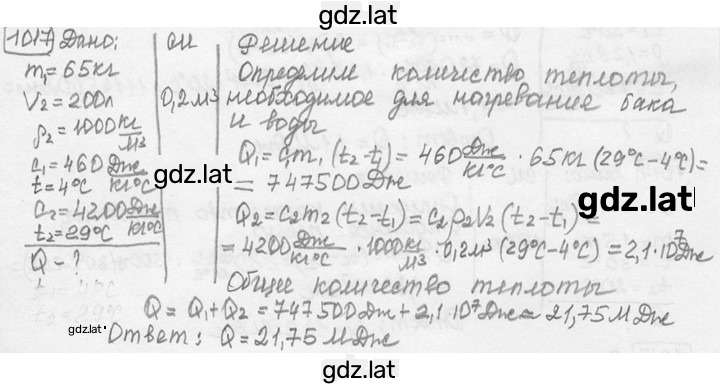 gdz.lat
1017 Дано:
m₁ = 65 кг
V₂ = 200 л
ρ₂ = 1000 кг/м³
c₁ = 460 Дж/кг°C
t₁ = 4°C
c₂ = 4200 Дж/кг°C
t₂ = 29°C
Q - ?
СИ
0,2 м³
Решение
Определим количество теплоты,
необходимое для нагревание бака
и воды
Q₁ = c₁m₁(t₂-t₁) = 460 Дж/кг°C · 65 кг (29°C-4°C) =
= 747500 Дж
Q₂ = c₂m₂(t₂-t₁) = c₂ρ₂V₂(t₂-t₁) =
= 4200 Дж/кг°C · 1000 кг/м³ · 0,2 м³ (29°C-4°C) = 2,1·10⁷ Дж
Общее количество теплоты
Q = Q₁ + Q₂ = 747500 Дж + 2,1·10⁷ Дж = 21,75 М Дж
Ответ: Q = 21,75 М Дж
gdz.lat
gdz.lat
gdz.lat
gdz.lat